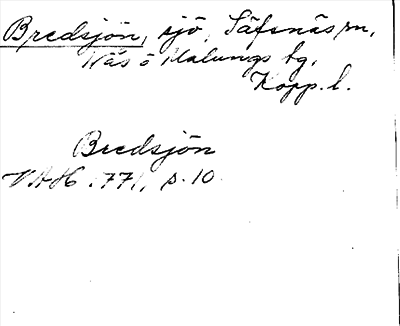 Bredsjön, sjö, Säfsnäs sn,
Näs o Malungs tg,
Kopp. l.
Bredsjön
VAH :77, s. 10